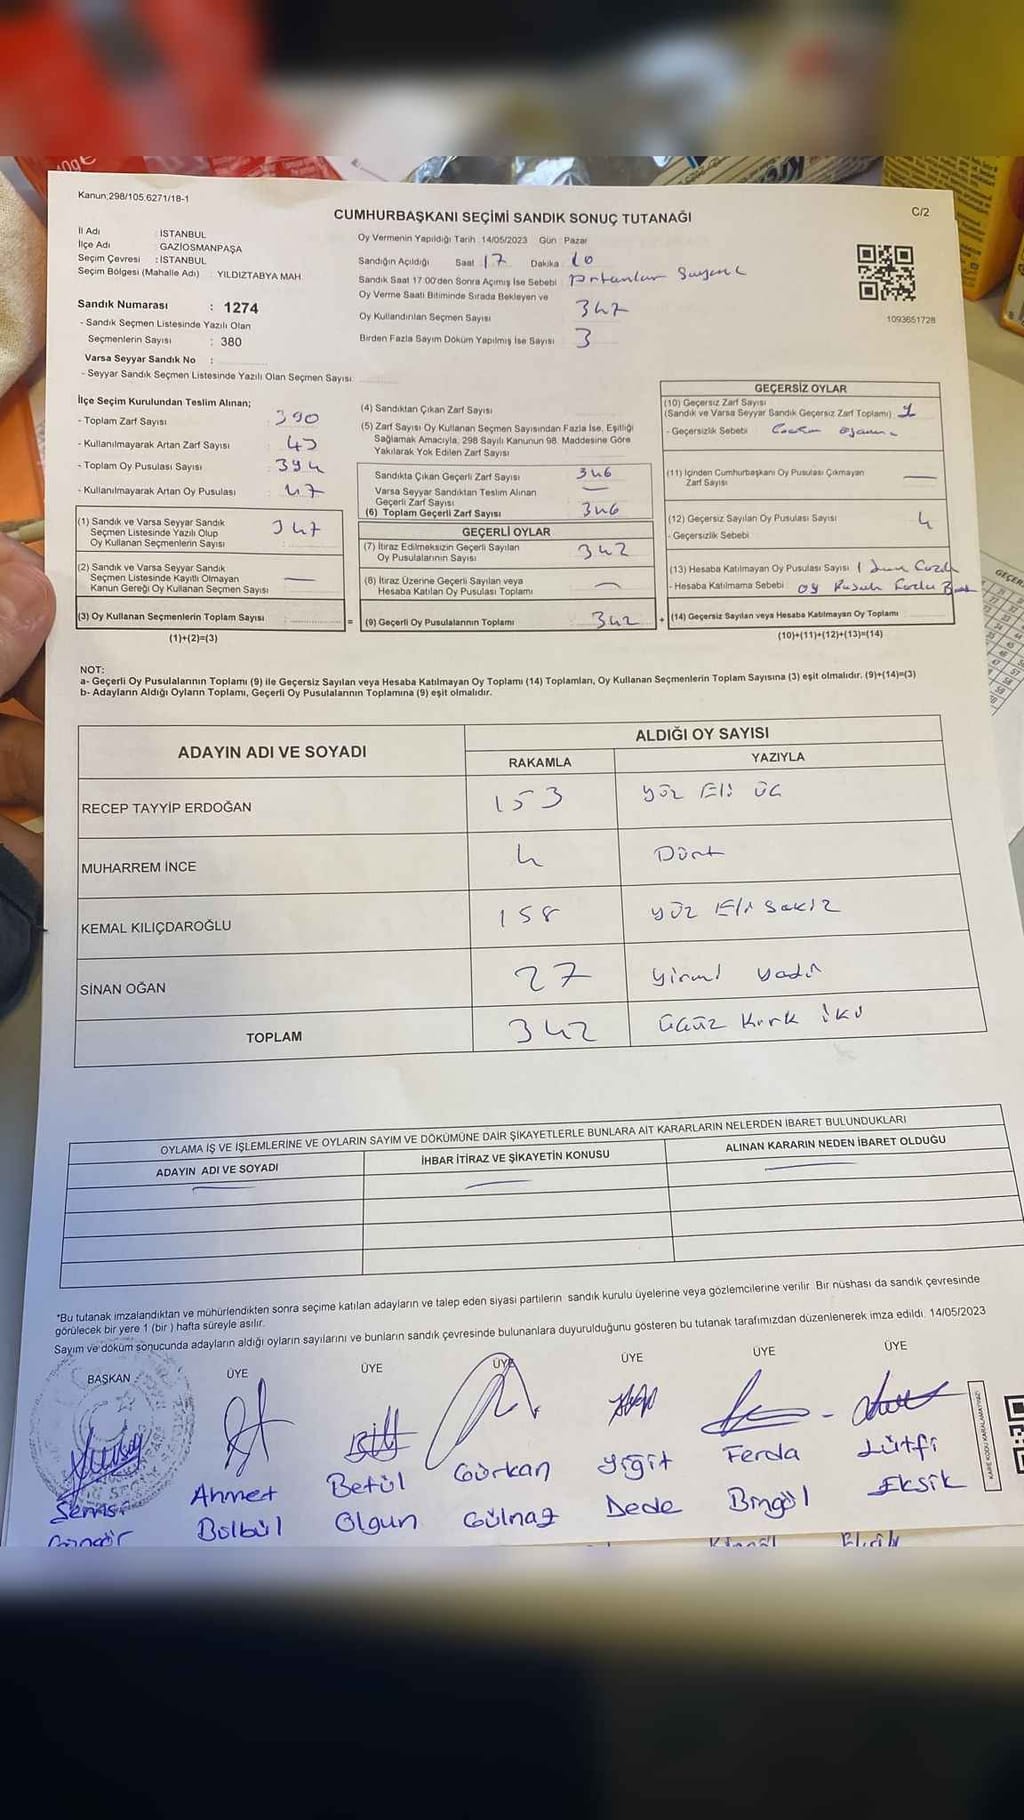 Kanun,298/105,6271/18-1
CUMHURBAŞKANI SEÇİMİ SANDIK SONUÇ TUTANAĞI
C/2
İl Adı : İSTANBUL
İlçe Adı : GAZİOSMANPAŞA
Seçim Çevresi : İSTANBUL
Seçim Bölgesi (Mahalle Adı) : YILDIZTABYA MAH.
Sandık Numarası : 1274
- Sandık Seçmen Listesinde Yazılı Olan
Seçmenlerin Sayısı : 380
Varsa Seyyar Sandık No :
- Seyyar Sandık Seçmen Listesinde Yazılı Olan Seçmen Sayısı:
Oy Vermenin Yapıldığı Tarih : 14/05/2023 Gün : Pazar
Sandığın Açıldığı Saat : 17 Dakika : 10
Sandık Saat 17:00'den Sonra Açımış İse Sebebi :
Oy Verme Saati Bitiminde Sırada Bekleyen ve
Oy Kullandırılan Seçmen Sayısı : 347
Birden Fazla Sayım Döküm Yapılmış İse Sayısı : 3
1093651728
İlçe Seçim Kurulundan Teslim Alınan;
- Toplam Zarf Sayısı : 390
- Kullanılmayarak Artan Zarf Sayısı : 43
- Toplam Oy Pusulası Sayısı : 394
- Kullanılmayarak Artan Oy Pusulası : 47
(1) Sandık ve Varsa Seyyar Sandık
Seçmen Listesinde Yazılı Olup
Oy Kullanan Seçmenlerin Sayısı : 347
(2) Sandık ve Varsa Seyyar Sandık
Seçmen Listesinde Kayıtlı Olmayan
Kanun Gereği Oy Kullanan Seçmen Sayısı :
(3) Oy Kullanan Seçmenlerin Toplam Sayısı :
(1)+(2)=(3)
(4) Sandıktan Çıkan Zarf Sayısı :
(5) Zarf Sayısı Oy Kullanan Seçmen Sayısından Fazla İse, Eşitliği
Sağlamak Amacıyla, 298 Sayılı Kanunun 98. Maddesine Göre
Yakılarak Yok Edilen Zarf Sayısı :
Sandıkta Çıkan Geçerli Zarf Sayısı : 346
Varsa Seyyar Sandıktan Teslim Alınan
Geçerli Zarf Sayısı :
(6) Toplam Geçerli Zarf Sayısı : 346
GEÇERLİ OYLAR
(7) İtiraz Edilmeksizin Geçerli Sayılan
Oy Pusulalarının Sayısı : 342
(8) İtiraz Üzerine Geçerli Sayılan veya
Hesaba Katılan Oy Pusulası Toplamı :
= (9) Geçerli Oy Pusulalarının Toplamı : 342
GEÇERSİZ OYLAR
(10) Geçersiz Zarf Sayısı
(Sandık ve Varsa Seyyar Sandık Geçersiz Zarf Toplamı) : 1
- Geçersizlik Sebebi :
(11) İçinden Cumhurbaşkanı Oy Pusulası Çıkmayan
Zarf Sayısı :
(12) Geçersiz Sayılan Oy Pusulası Sayısı : 4
- Geçersizlik Sebebi :
(13) Hesaba Katılmayan Oy Pusulası Sayısı : 1
- Hesaba Katılmama Sebebi : oy
+ (14) Geçersiz Sayılan veya Hesaba Katılmayan Oy Toplamı :
(10)+(11)+(12)+(13)=(14)
NOT:
a- Geçerli Oy Pusulalarının Toplamı (9) ile Geçersiz Sayılan veya Hesaba Katılmayan Oy Toplamı (14) Toplamları, Oy Kullanan Seçmenlerin Toplam Sayısına (3) eşit olmalıdır. (9)+(14)=(3)
b- Adayların Aldığı Oyların Toplamı, Geçerli Oy Pusulalarının Toplamına (9) eşit olmalıdır.
ADAYIN ADI VE SOYADI
ALDIĞI OY SAYISI
RAKAMLA YAZIYLA
RECEP TAYYİP ERDOĞAN 153 Yüz Elli Üç
MUHARREM İNCE 4 Dört
KEMAL KILIÇDAROĞLU 158 yüz Elli Sekiz
SİNAN OĞAN 27 yirmi yedi
TOPLAM 342 üçüz Kırk iki
OYLAMA İŞ VE İŞLEMLERİNE VE OYLARIN SAYIM VE DÖKÜMÜNE DAİR ŞİKAYETLERLE BUNLARA AİT KARARLARIN NELERDEN İBARET BULUNDUKLARI
ADAYIN ADI VE SOYADI İHBAR İTİRAZ VE ŞİKAYETİN KONUSU ALINAN KARARIN NEDEN İBARET OLDUĞU
*Bu tutanak imzalandıktan ve mühürlendikten sonra seçime katılan adayların ve talep eden siyasi partilerin sandık kurulu üyelerine veya gözlemcilerine verilir. Bir nüshası da sandık çevresinde
görülecek bir yere 1 (bir) hafta süreyle asılır.
Sayım ve döküm sonucunda adayların aldığı oyların sayılarını ve bunların sandık çevresinde bulunanlara duyurulduğunu gösteren bu tutanak tarafımızdan düzenlenerek imza edildi. 14/05/2023
BAŞKAN ÜYE ÜYE ÜYE ÜYE ÜYE ÜYE
Ahmet Bülbül
Betül Olgun
Gürkan Gülnaz
Yiğit Dede
Ferda Bingöl
Lütfi Eksik
KARE KODU KARALAMAYINIZ!